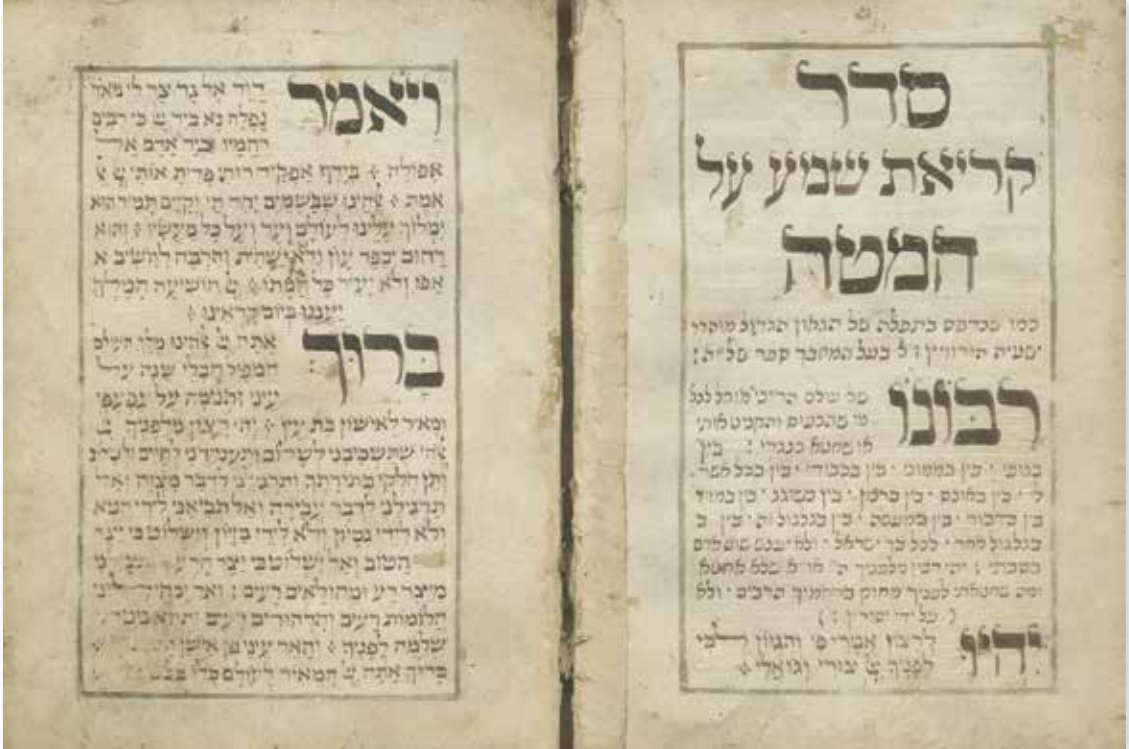 סדר
קריאת שמע על
המטה
כמו שנדפס בתפלת של הגאון הגדול
ישעיה הורוויץ ז"ל בעל המחבר ספר של"ה:
רבונו
של עולם הריני מוחל לכל
מי שהכעיס והקניט אותי
או שחטא כנגדי : בין
בגופי · בין בממוני · בין בכבודי · בין בכל אשר
לי · בין באונס · בין ברצון · בין בשוגג · בין במזיד
בין בדבור · בין במעשה · בין בגלגול זה · בין ב
בגלגול אחר · לכל בר ישראל · ולא יענש שום אדם
בסבתי : יהי רצון מלפניך שלא אחטא
ומה שחטאתי לפניך מחוק ברחמיך הרבים · ולא
על ידי יסורין :
יהיו
לרצון אמרי פי והגיון לבי
לפניך צורי וגואלי
ויאמר
דוד אל גד צר לי מאד
נפלה נא ביד כי רבים
רחמיו וביד אדם אל
אפולה בידך אפקיד רוחי פדית אותי
אמת שבשמים יחד חי וקיים תמיד הוא
ימלוך עלינו לעולם ועד ועל כל מעשיו והוא
רחום יכפר עון ולא ישחית והרבה להשיב א
אפו ולא יעיר כל חמתו הושיעה המלך
יעננו ביום קראינו
ברוך
אתה מלך העולם
המפיל חבלי שנה על
עיני ותנומה על עפעפי
ומאיר לאישון בת עין ויהי רצון מלפניך
שתשכיבני לשלום ותעמידני לחיים ולשלום
ותן חלקי בתורתך ותרגילני לדבר מצוה ואל
תרגילני לדבר עבירה ואל תביאני לידי חטא
ולא לידי נסיון ולא לידי בזיון וישלוט בי יצר
הטוב ואל ישלוט בי יצר הרע
מיצר רע ומחולאים רעים ואל יבהילוני
חלומות רעים והרהורים רעים ותהא מטתי
שלמה לפניך והאר עיני פן אישן
ברוך אתה המאיר לעולם כלו